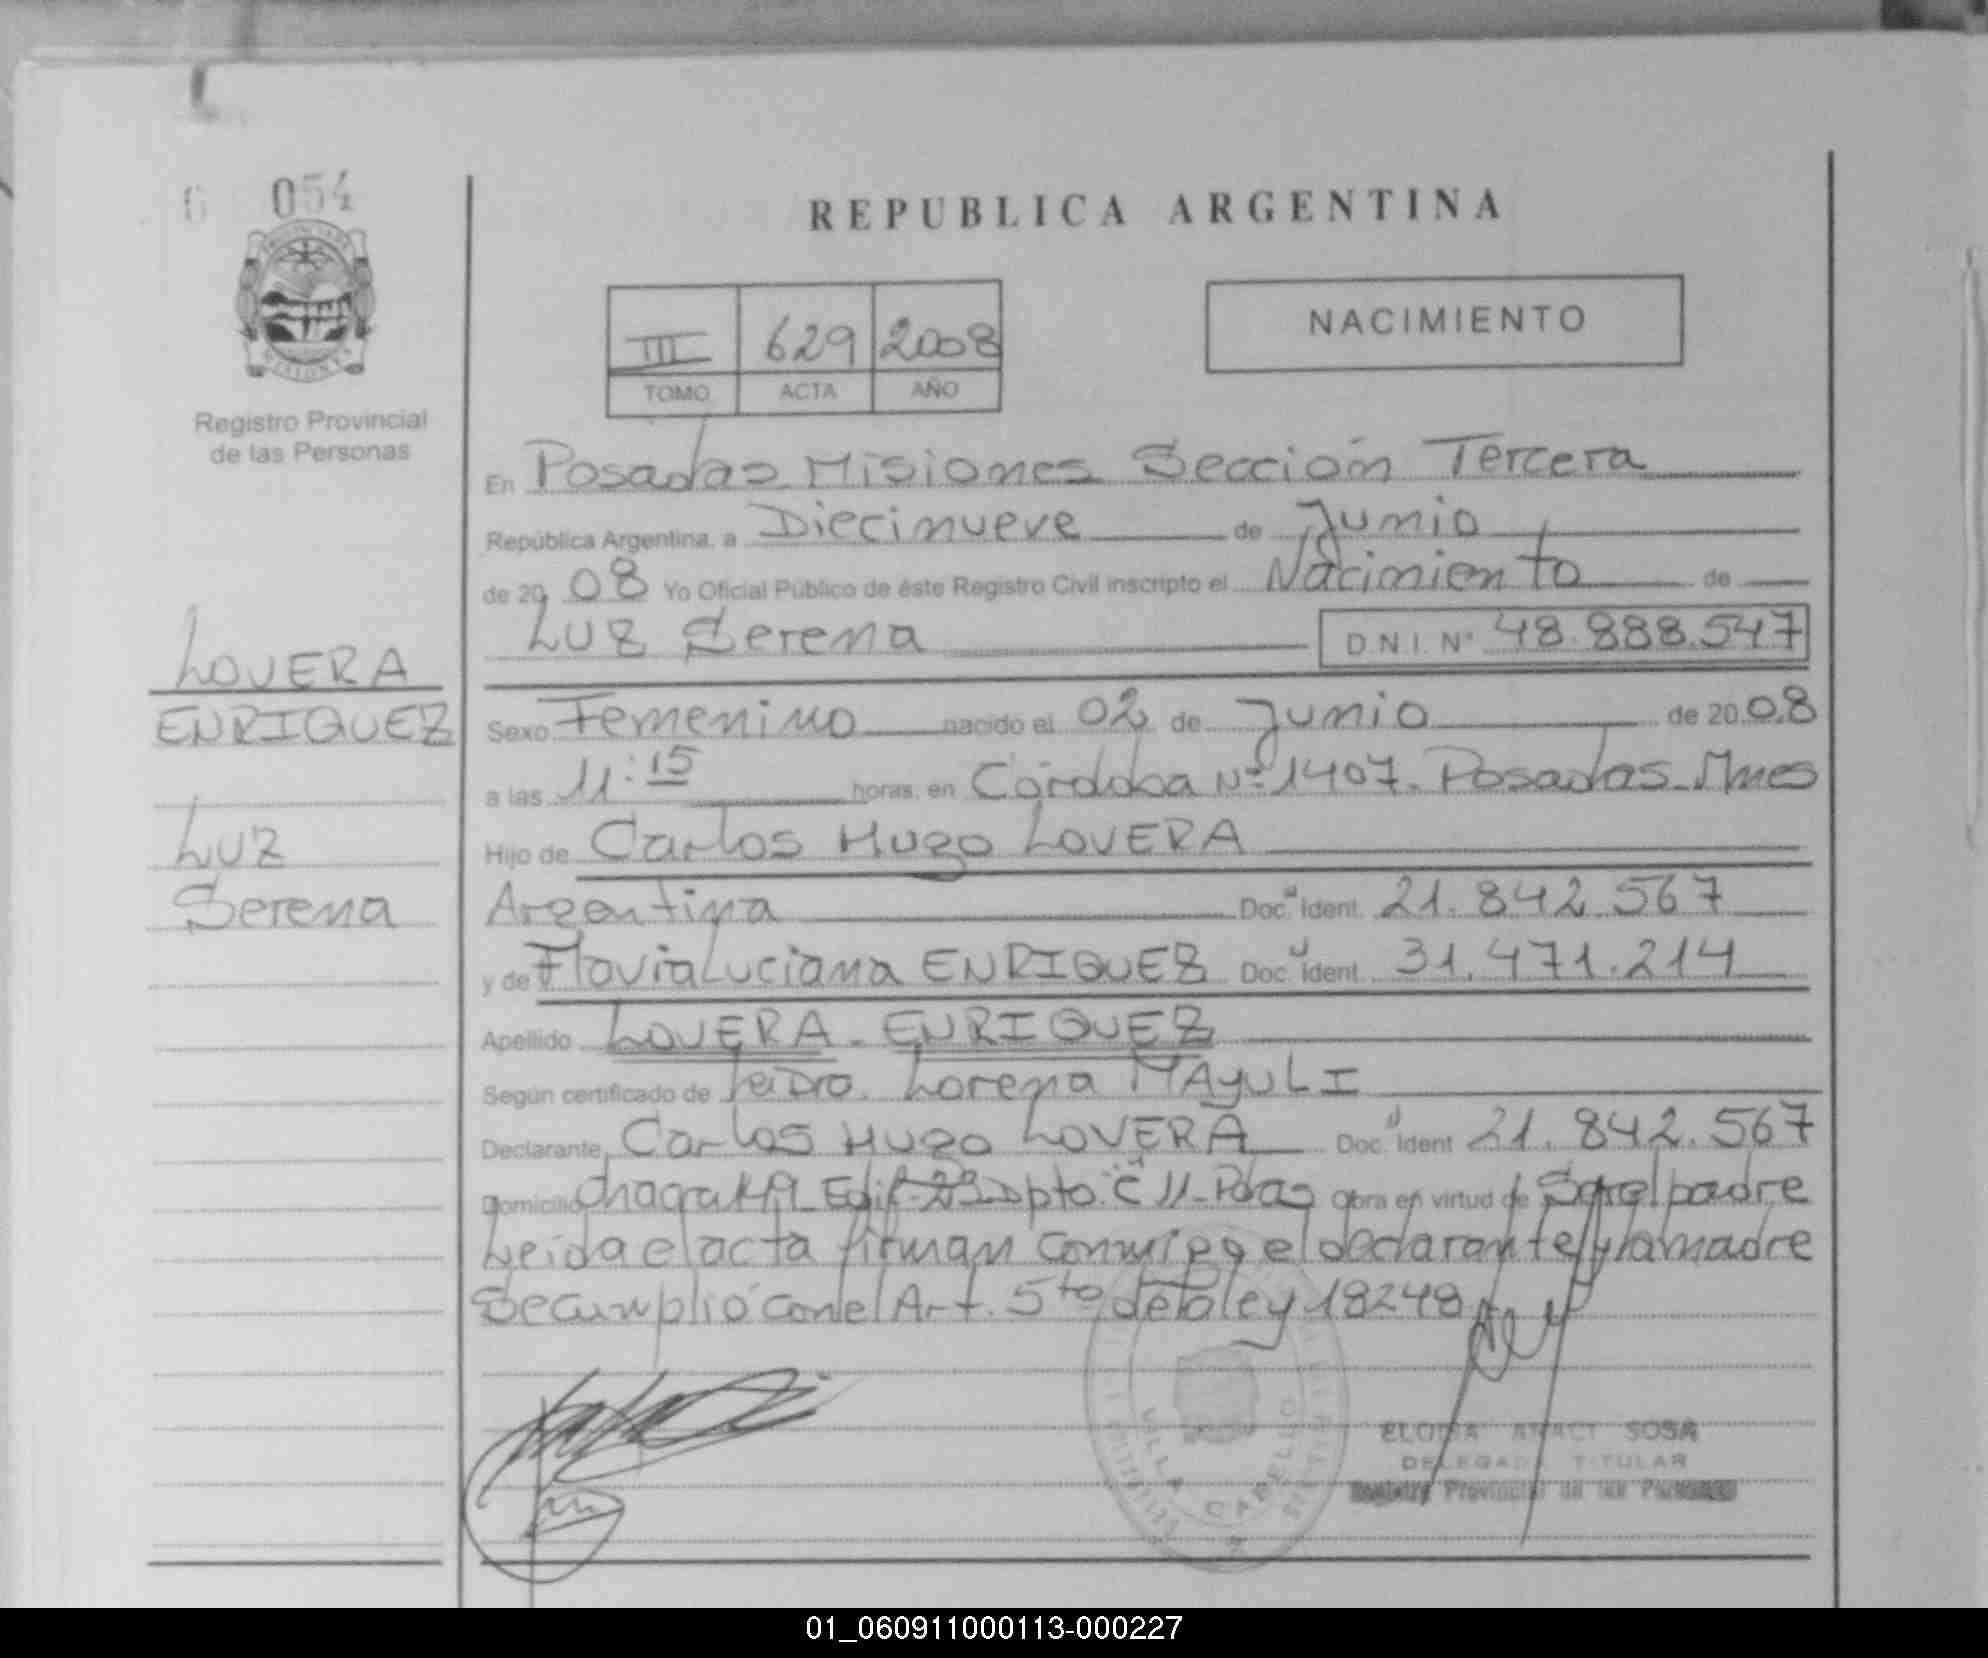 6 054
REPUBLICA ARGENTINA
III 629 2008
TOMO ACTA AÑO
NACIMIENTO
Registro Provincial
de las Personas
En Posadas Misiones Sección Tercera
República Argentina, a Diecinueve de Junio
de 2008 Yo Oficial Público de éste Registro Civil inscripto el Nacimiento de
Luz Serena D.N.I. Nº 48.888.547
LOVERA
ENRIQUEZ
Luz
Serena
Sexo Femenino nacido el 02 de Junio de 2008
a las 11:15 horas, en Córdoba Nº 1407. Posadas Mnes
Hijo de Carlos Hugo LOVERA
Argentina Doc. Ident. 21.842.567
y de Flavia Luciana ENRIQUEZ Doc. Ident. 31.471.214
Apellido LOVERA - ENRIQUEZ
Según certificado de Lorena MAYULI
Declarante Carlos Hugo LOVERA Doc. Ident 21.842.567
Domicilio Chacra 149 Edif. 23 Dpto. C 11 - Pdas Obra en virtud de Ser el padre
Leida el acta firman conmigo el declarante y la madre
Se cumplió con el Art. 5to de la ley 18248
VILLA CABELLO
SOSA
DELEGADA TITULAR
Registro Provincial de las Personas
01_060911000113-000227